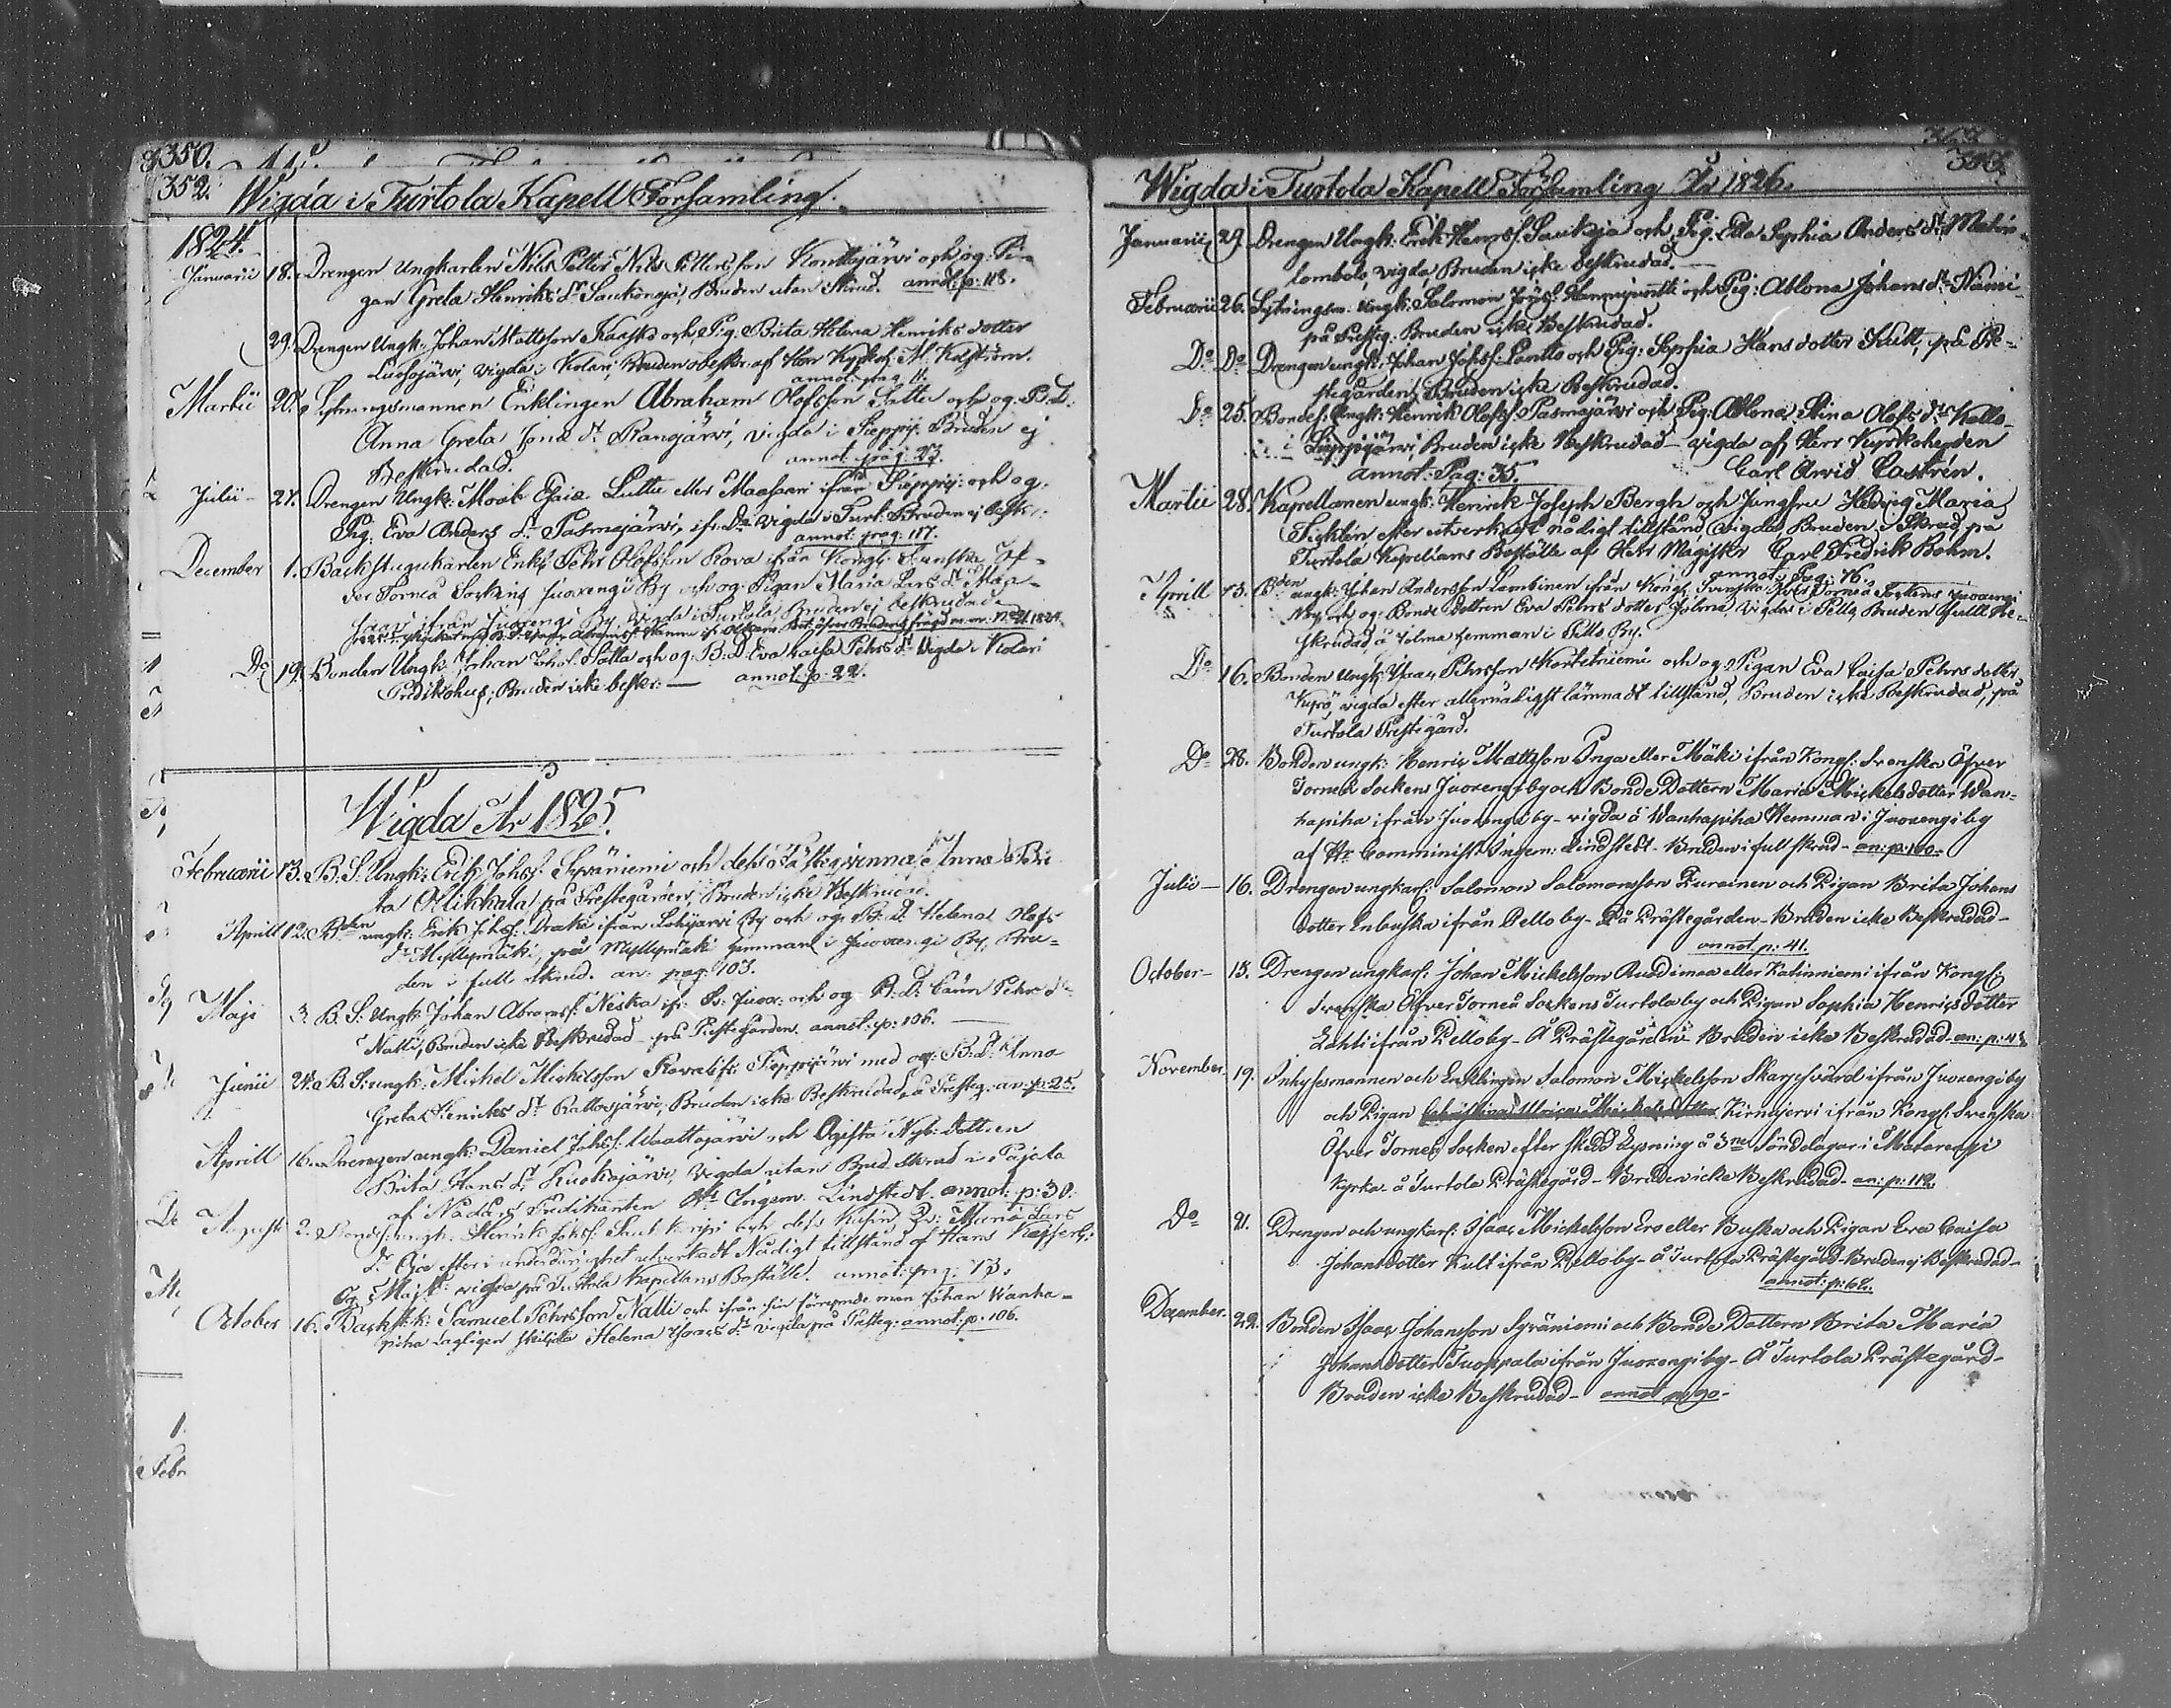 350.
352. Wigda i Turtola Kapell Församling.
1824.
Januarii 18. Drengen Ungkarlen Nils Petter Nils Pettersson Konttajärvi och og: Pi-
gan Greta Henriks dr Saukongi, Bruden utan Skrud. annot: p: 118.
29. Drengen Ungk: Johan Mattsson Kaasko och Pig. Brita Helena Henriks dotter
Luosojärvi, vigda i Kolari, Bruden obeskr. af Herr Kyrkoh: M. Kalström.
annot. pag. 11.
Martii 20. Sytningsmannen Enklingen Abraham Olofsson Satta och og. B.D.
Anna Greta Jons dr Rangjärvi, vigda i Sieppij. Bruden ej
Beskrudad. annot. pag. 23.
Julii 27. Drengen Ungk: Moak Esaie Luttu eller Maassari ifrån Sieppij: och og.
Pig. Eva Anders dr Pasmajärvi, ifr: Do vigda i Turt. Bruden ej beskr:
annot. prag: 117.
December 1. Backstugukarlen Enkl: Pehr Olofsson Rova ifrån Kongl. Svenska Öf-
ver Torneå Sockens Juoxengi By och og. Pigan Maria Lars dr
ifrån Juoxengi By, vigda i Turtola, Bruden ej beskrudad.
Do 19. Bonden Ungk: Johan Johs: Satta och og. B:D. Eva Caisa Pehrs dr Vigda i Kolari
Predikohus, Bruden icke beskr: — annot. p: 22.
Wigda År 1825.
Februarii 13. B. S. Ungk: Erik Johss: Syväniemi och dess Fästeqvinna Anna Bri
ta Mikkala på Prestegården, Bruden icke Beskrudad.
Aprill 12. Bden ungk: Erik Johss: Drake ifrån Lohijärvi By och og. B: D: Helena Olofs
dr Myllymäki, på Myllymäki hemman i Juoxengi By, Bru-
den i full skrud. an: pag: 103.
Maji 3. B. S: Ungk: Johan Abramss: Niska ifr: Sv: Juox: och og B: D: Carin Pehrs dr
Natti, Bruden icke Beskrudad på Prestegården. annot: p: 106.
Junii 24. B. S: ungk: Michel Mickelsson Rova ifr: Sieppijärvi med og: B:D: Anna
Greta Henriks dr Rattosjärvi, Bruden icke Beskrudad, å Presteg. an: p: 25.
Aprill 16. Drengen ungk: Daniel Johss: Waattojärvi och Ogifta Nyb: dottren
Brita Hans dr Ruokojärvi, Vigda utan Brud Skrud i Pajala
af Nådårs Predikanten Hr Ingem. Lindstedt. annot: p: 30.
Augusti 2. Bondes: ungk: Henrik Johss: och dess Kusin, Maria Lars
dr Oja efter i underdånighet utverkadt Nådigt tillstånd af Hans Kejserl:
Maj:t vigda på Turtola Kapellans Boställe. annot: pag: 73.
October 16. Backstk: Samuel Pehrsson Natti och ifrån sin förrymde man Johan Wanha-
piha Lagligen skiljda Helena Isaacs dr vigda på Presteg: annot: p: 106.
Wigda i Turtola Kapell Församling År 1826.
Januarii 29. Drengen Ungk: Erik Henrss: Saukoja och Pig: Ella Sophia Anders dr Matin
lombolo, vigda, Bruden icke beskrudad.
Februarii 26. Sytningsm. Ungk: Salomon och Pig: Ablona Johans dr Nämi
på Presteg. Bruden icke Beskrudad.
Do Do Drengen ungk: Johan Johss: Lantto och Pig: Sophia Hans dotter Kult, på Pre-
stegården, Bruden icke Beskrudad.
Do 25. Bondes: Ungk: Henrik Olofss: Pasmajärvi och Pig: Ablona Stina Olofs dr Kallo
i Sieppijärvi Bruden icke Beskrudad vigda af Herr Kyrkoherden
annot: Pag: 35. Carl Arvid Castrén.
Martii 28. Kapellanen ungk: Henrik Joseph Bergh och Jungfru Hedvig Maria
Ticklén efter utverkadt nådigt tillstånd, vigda, Bruden i Skrud, på
Turtola Kapellans Boställe af Herr Magister Carl Fredrik Bohm.
annot: Pag: 76.
Aprill 13. Bden ungk: Johan Andersson Lambinen ifrån Kongl. Svenska Öfver Torneå Sockens Juoxengi
By och og: Bonde dottren Eva Pehrs dotter Jolma, vigda i Pello, Bruden i full Be-
skrudad å Jolma hemman i Pello By.
Do 16. Bonden Ungk: Isaac Pehrsson Kortetniemi och og: Pigan Eva Caisa Pehrs dotter
Kyrö, vigda efter allernådigst lämnadt tillstånd, Bruden icke Beskrudad, på
Turtola Prestegård.
Do 28. Bonden ungk: Henric Mattsson Inga eller Mäki ifrån Kongl: Svenska Öfver
Torneå Sockens Juoxengi by och Bonde Dottern Maria Mickelsdotter Wan-
hapiha ifrån Juoxengi by - vigda å Wanhapiha Hemman i Juoxengi by
af Hr Comminist: Ingem: Lindstedt - Bruden i full skrud - an: p: 100.
Julii 16. Drengen ungkarl: Salomon Salomonsson Kurainen och Pigan Brita Johans
dotter Enbuska ifrån Pello by - På Prästegården - Bruden icke Beskrudad -
annot. p: 41.
October 15. Drengen ungkarl: Johan Mickelsson Ruddimaa eller Katinniemi ifrån Kongl:
Svenska Öfver Torneå Sockens Turtola by och Pigan Sophia Henricsdotter
Lahti ifrån Pello by - Å Prästegården - Bruden icke Beskrudad - an: p: 43.
November 19. Inhysesmannen och Enklingen Salomon Mickelsson Skarpsvärd ifrån Juoxengi by
och Pigan Christina Ulrica Mickels dotter Kirnujervi ifrån Kongl. Svenska
Öfver Torneå Socken efter skedd Lysning å 3ne Sönddagar i Matarengi
Kyrka - å Turtola Prästegård - Bruden icke Beskrudad - an: p: 112.
Do 21. Drengen och ungkarl: Isaac Mickelsson Ero eller Buska och Pigan Eva Caisa
Johansdotter Kult ifrån Pello by - å Turtola Prästegård - Bruden ej Beskrudad -
annot: p: 62.
December 22. Bonden Isaac Johansson Syväniemi och Bonde Dottern Brita Maria
Johansdotter Tuoppala ifrån Juoxengi by - Å Turtola Prästegård -
Bruden icke Beskrudad - annot p: 90 -